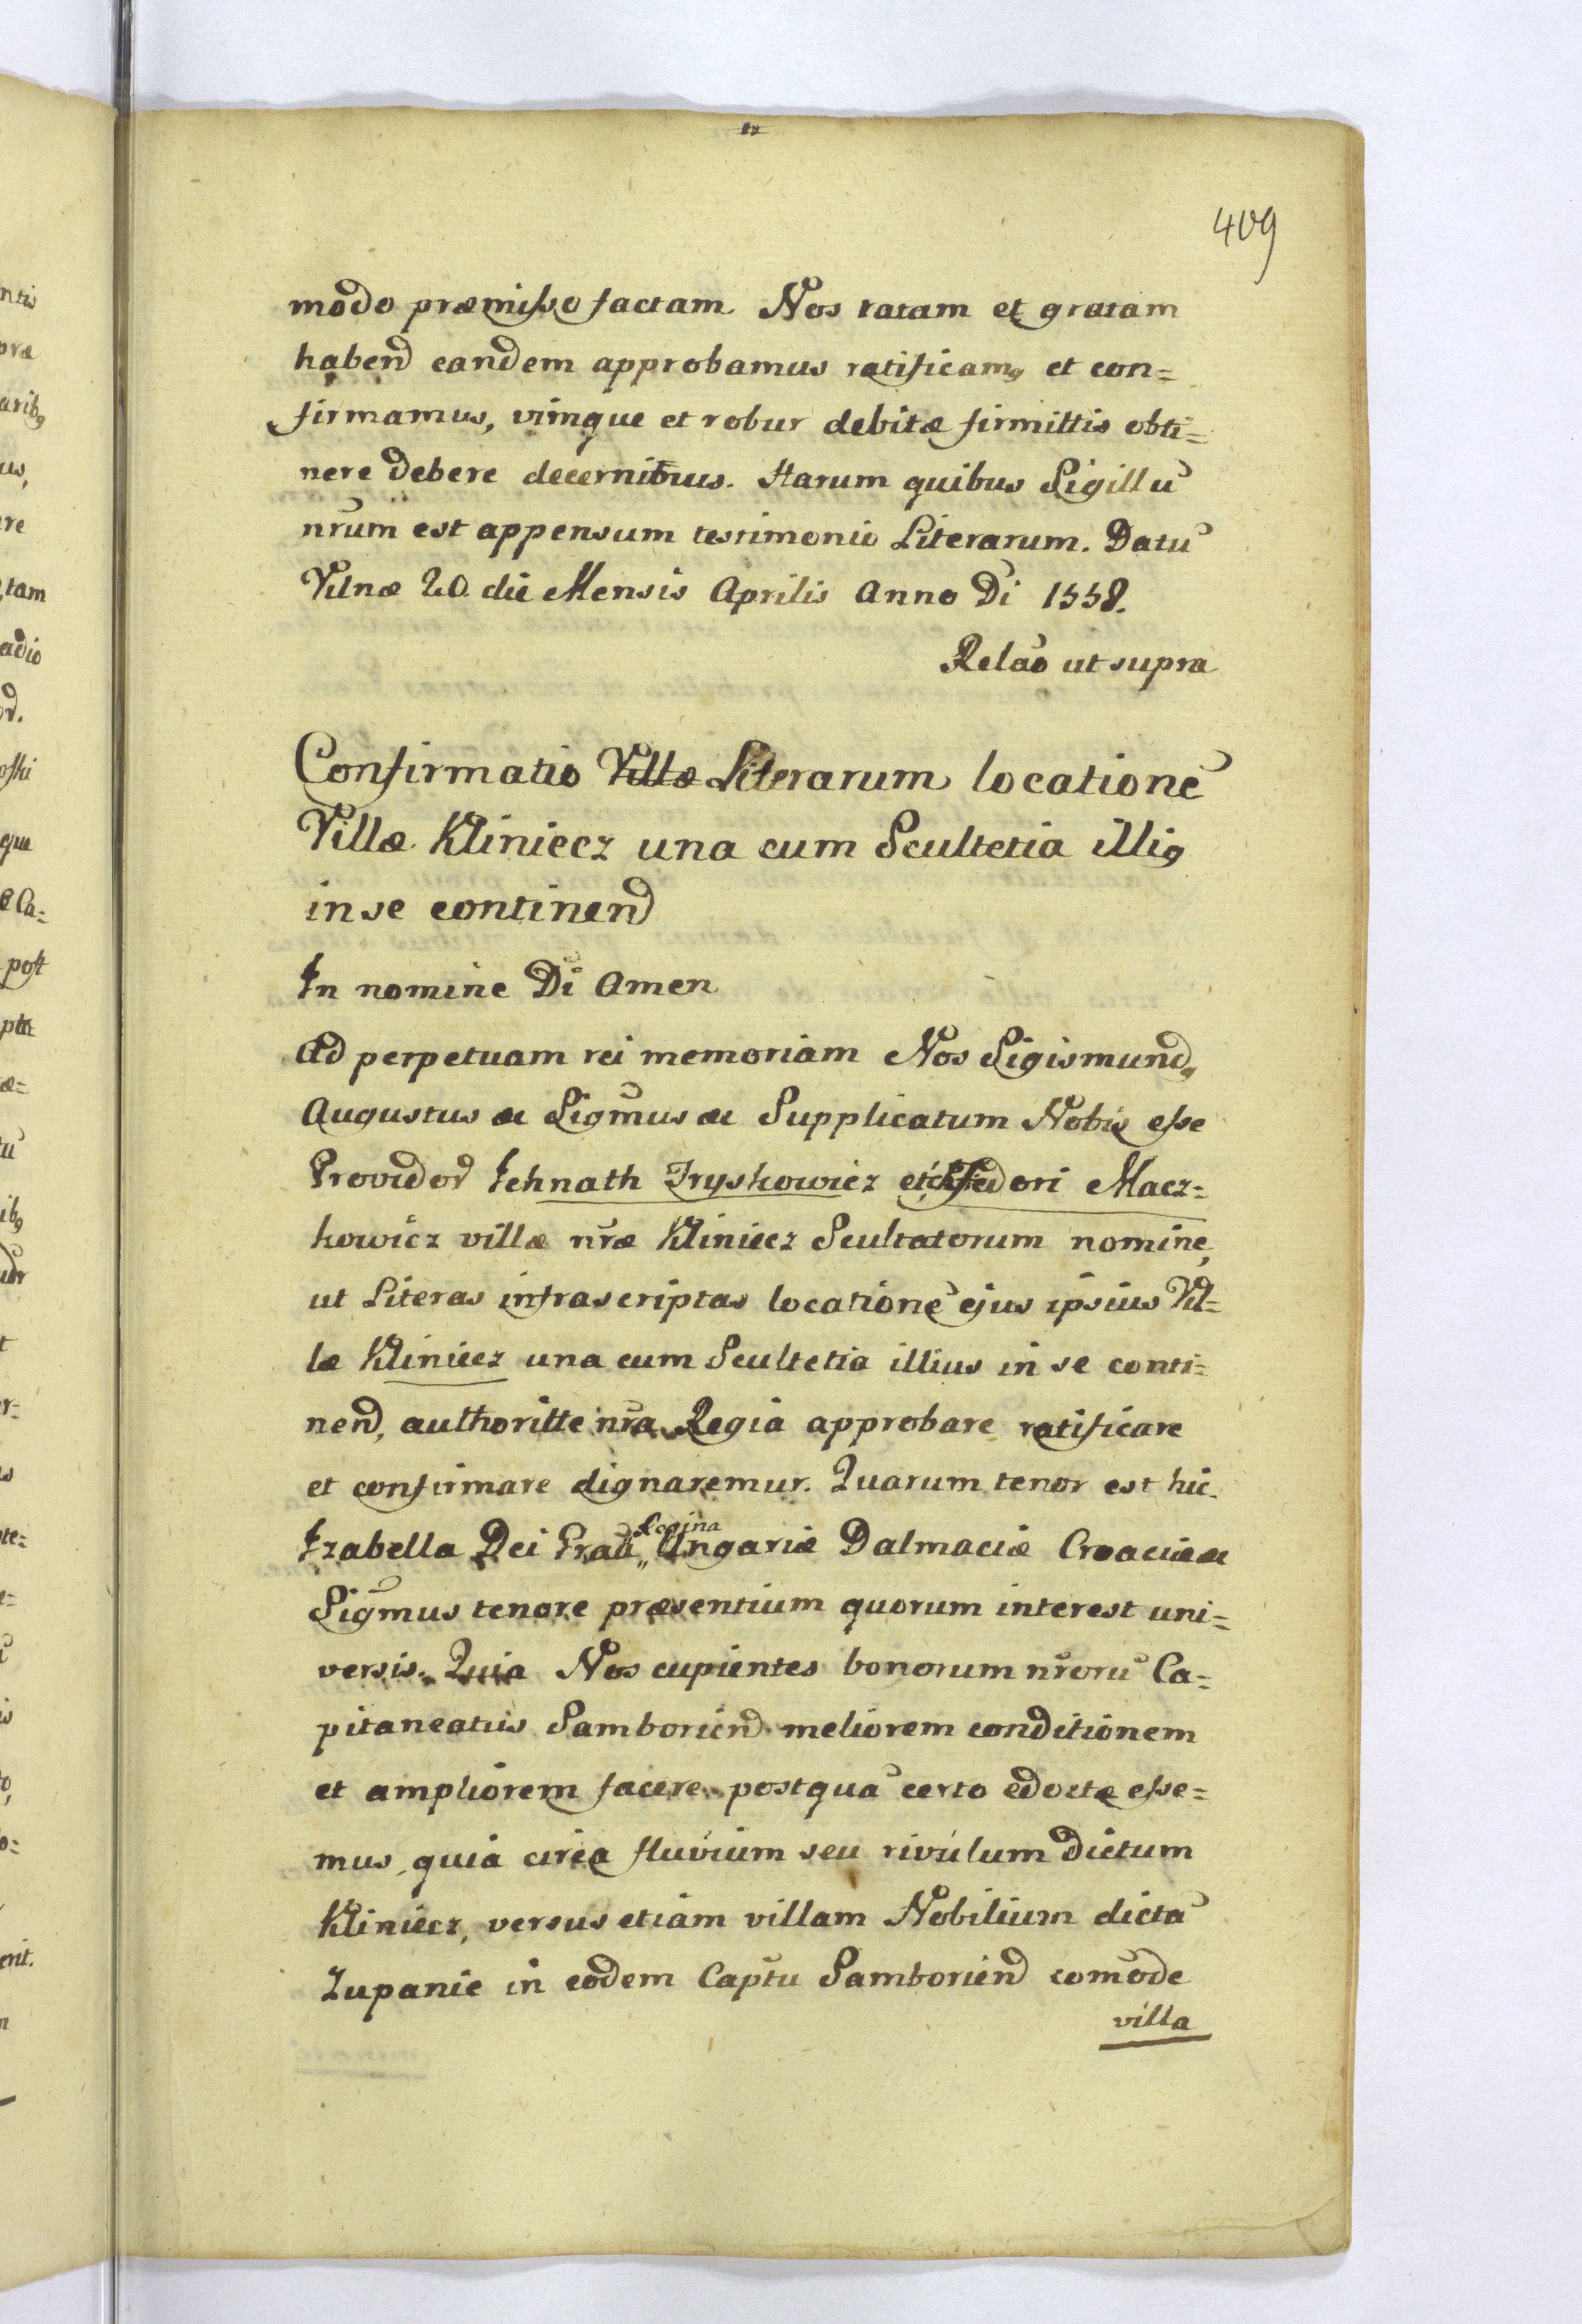 409
modo præmisso factam Nos ratam et gratam
habend eandem approbamus ratificamꝯ et con=
firmamus, vimque et robur debitæ firmittis obti=
nere debere decernimus. Harum quibus Sigillū
nrum est appensum testimonio Literarum. Datū
Vilnæ 20 die Mensis Aprilis Anno Di 1558.
Relāo ut supra
Confirmatio Villæ Literarum locationē
Villæ Kliniecz una cum Scultetia illiꝯ
in se continend
In nomine Di Amen
Ad perpetuam rei memoriam Nos Sigismundꝯ
Augustus &c Sigmus &c Supplicatum Nobis esse
Providor Iehnath Tryskowicz et Fiedori Macz=
kowicz villæ nræ Kliniecz Scultetorum nomine,
ut Literas infrascriptas locationē ejus ipsius Vil=
læ Kliniecz una cum Scultetia illius in se conti=
nend, authoritte nra Regia approbare ratificare
et confirmare dignaremur. Quarum tenor est hic.
Izabella Dei Graū Regina Ungariæ Dalmaciæ Croaciæ &c
Sigmus tenore præsentium quorum interest uni=
versis. Quia Nos cupientes bonorum nrorū Ca=
pitaneatus Samboriend meliorem conditionem
et ampliorem facere postquā certo edoctæ esse=
mus, quia circa fluvium seu rivulum Dictum
Kliniecz, versus etiam villam Nobilium dictā
Zupanie in eodem Captu Samboriend comode
villa